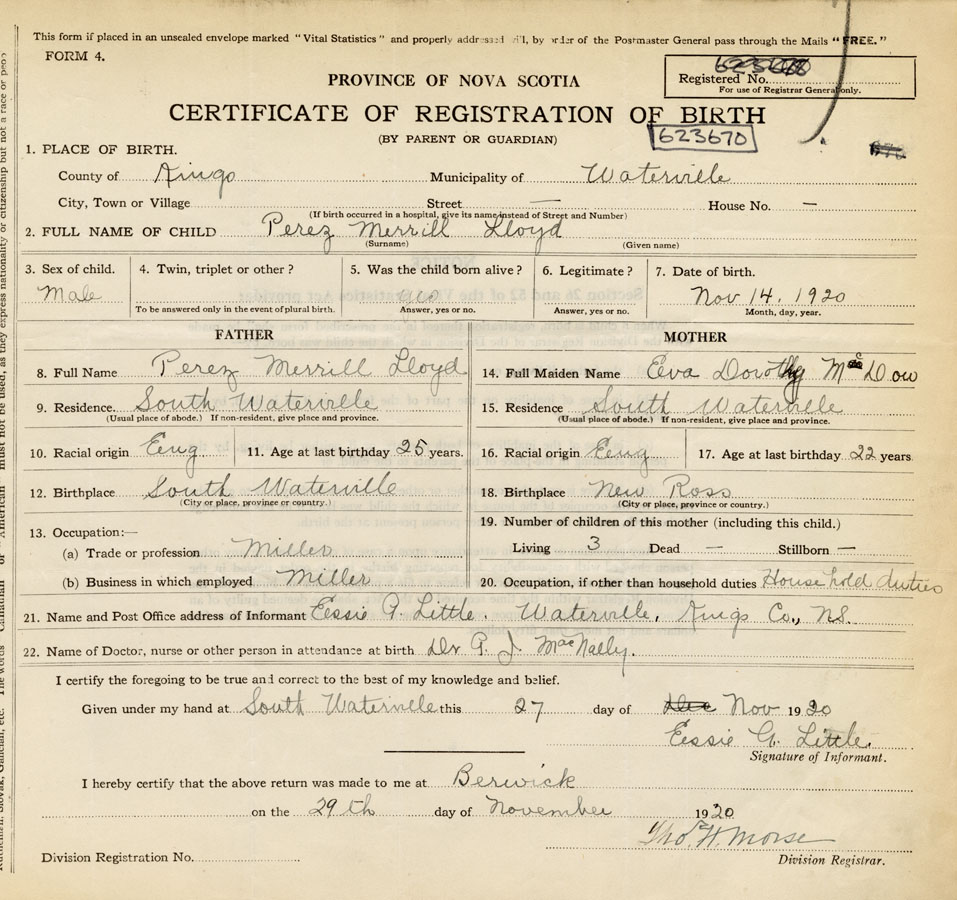 This form if placed in an unsealed envelope marked "Vital Statistics" and properly addressed will, by order of the Postmaster General pass through the Mails "FREE."
FORM 4.
PROVINCE OF NOVA SCOTIA
Registered No.
For use of Registrar General only.
CERTIFICATE OF REGISTRATION OF BIRTH
(BY PARENT OR GUARDIAN)
623670
1. PLACE OF BIRTH.
County of Kings Municipality of Waterville
City, Town or Village Street — House No. —
(If birth occurred in a hospital, give its name instead of Street and Number)
2. FULL NAME OF CHILD Perez Merrill Lloyd
(Surname) (Given name)
3. Sex of child. 4. Twin, triplet or other? 5. Was the child born alive? 6. Legitimate? 7. Date of birth.
Male yes Nov 14. 1920
To be answered only in the event of plural birth. Answer, yes or no. Answer, yes or no. Month, day, year.
FATHER MOTHER
8. Full Name Perez Merrill Lloyd 14. Full Maiden Name Eva Dorothy MacDow
9. Residence. South Waterville 15. Residence South Waterville
(Usual place of abode.) If non-resident, give place and province. (Usual place of abode.) If non-resident, give place and province.
10. Racial origin Eng 11. Age at last birthday 25 years. 16. Racial origin Eng 17. Age at last birthday 22 years
12. Birthplace South Waterville 18. Birthplace New Ross
(City or place, province or country.) (City or place, province or country.)
13. Occupation:— 19. Number of children of this mother (including this child.)
(a) Trade or profession Miller Living 3 Dead — Stillborn —
(b) Business in which employed Miller 20. Occupation, if other than household duties Household duties
21. Name and Post Office address of Informant Essie G. Little. Waterville, Kings Co., N.S.
22. Name of Doctor, nurse or other person in attendance at birth Dr G. J. MacNally.
I certify the foregoing to be true and correct to the best of my knowledge and belief.
Given under my hand at South Waterville this 27 day of Nov 1920
Essie G. Little.
Signature of Informant.
I hereby certify that the above return was made to me at Berwick
on the 29th day of November 1920
Tho. H. Morse
Division Registration No. Division Registrar.